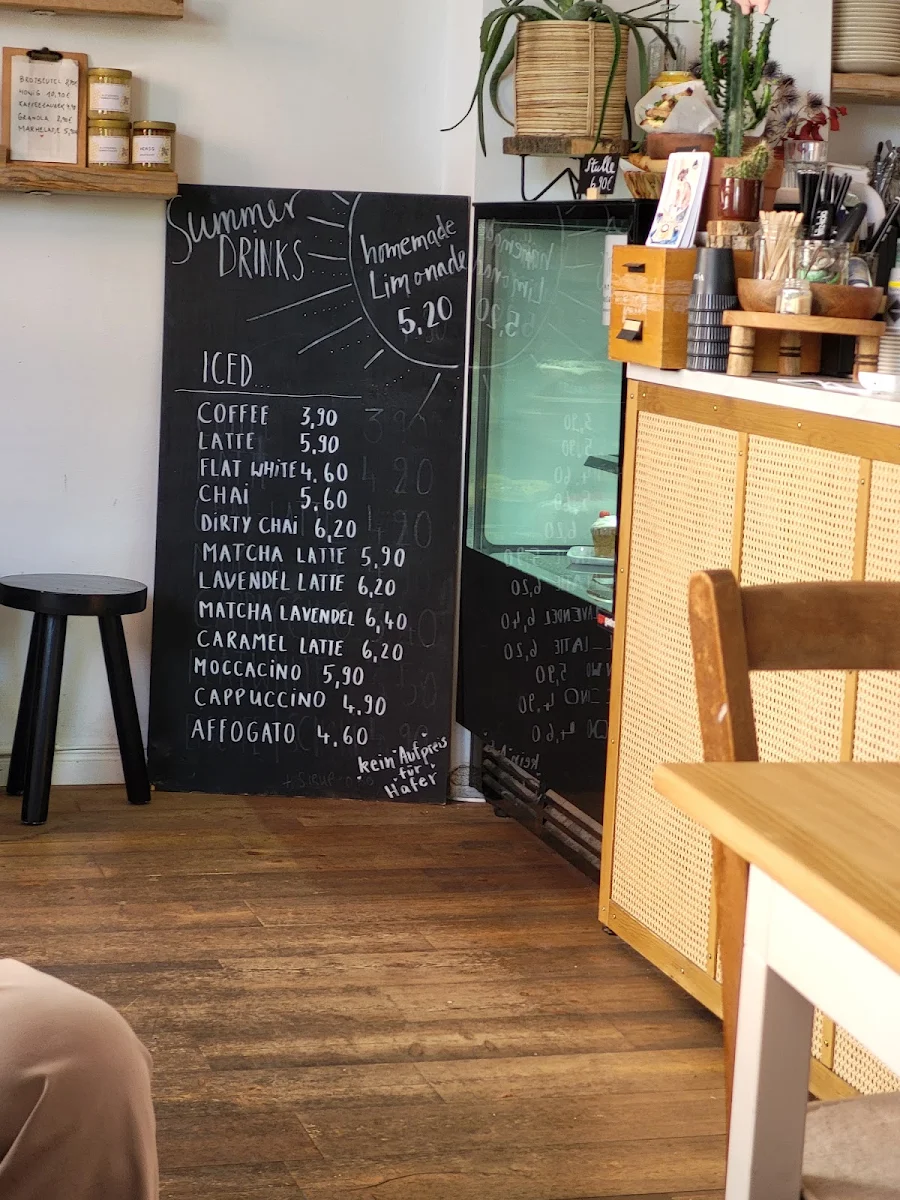 HONIG 10,90€
GRANOLA
Stulle
6,90€
Summer
DRINKS
homemade
Limonade
5,20
ICED
COFFEE 3,90
LATTE 5,90
FLAT WHITE 4,60
CHAI 5,60
DIRTY CHAI 6,20
MATCHA LATTE 5,90
LAVENDEL LATTE 6,20
MATCHA LAVENDEL 6,40
CARAMEL LATTE 6,20
MOCCACINO 5,90
CAPPUCCINO 4,90
AFFOGATO 4,60
kein Aufpreis
für
Hafer